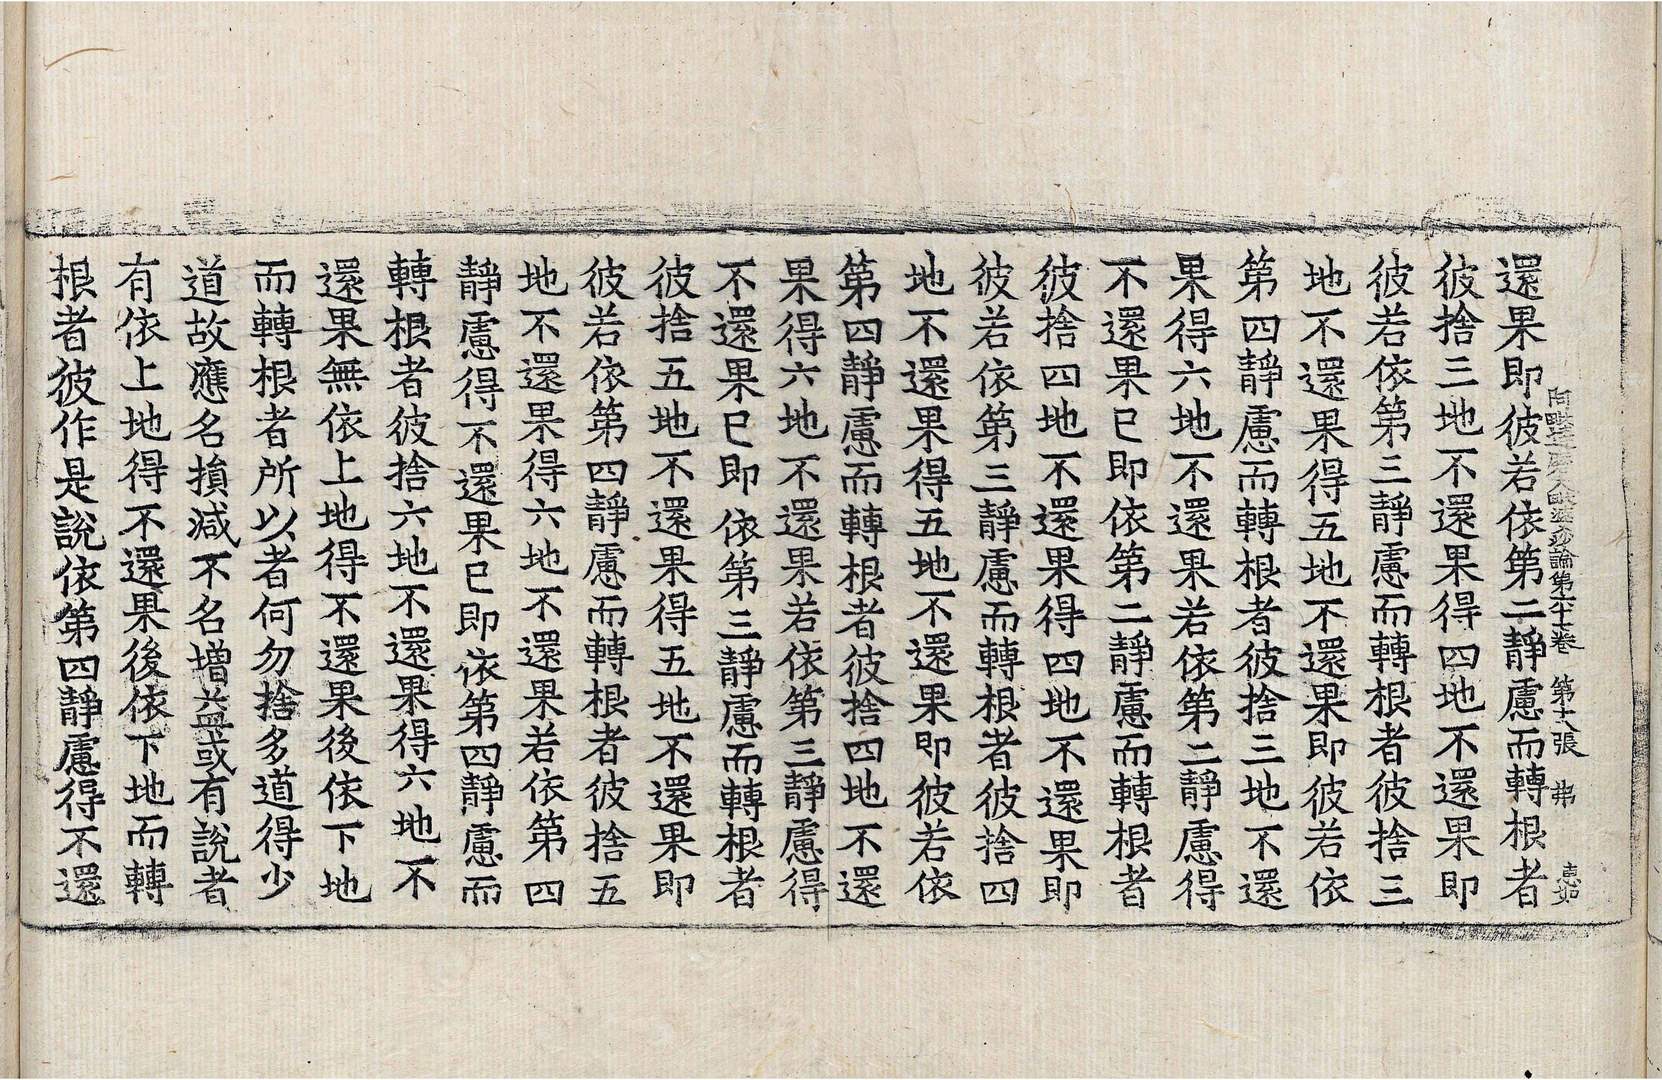 阿毗達磨大毗婆沙論第 卷 第 張 弗
還果即彼若依第二靜慮而轉根者
彼捨三地不還果得四地不還果即
彼若依第三靜慮而轉根者彼捨三
地不還果得五地不還果即彼若依
第四靜慮而轉根者彼捨三地不還
果得六地不還果若依第二靜慮得
不還果已即依第二靜慮而轉根者
彼捨四地不還果得四地不還果即
彼若依第三靜慮而轉根者彼捨四
地不還果得五地不還果即彼若依
第四靜慮而轉根者彼捨四地不還
果得六地不還果若依第三靜慮得
不還果已即依第三靜慮而轉根者
彼捨五地不還果得五地不還果即
彼若依第四靜慮而轉根者彼捨五
地不還果得六地不還果若依第四
靜慮得不還果已即依第四靜慮而
轉根者彼捨六地不還果得六地不
還果無依上地得不還果後依下地
而轉根者所以者何勿捨多道得少
道故應名損減不名增益或有說者
有依上地得不還果後依下地而轉
根者彼作是說依第四靜慮得不還